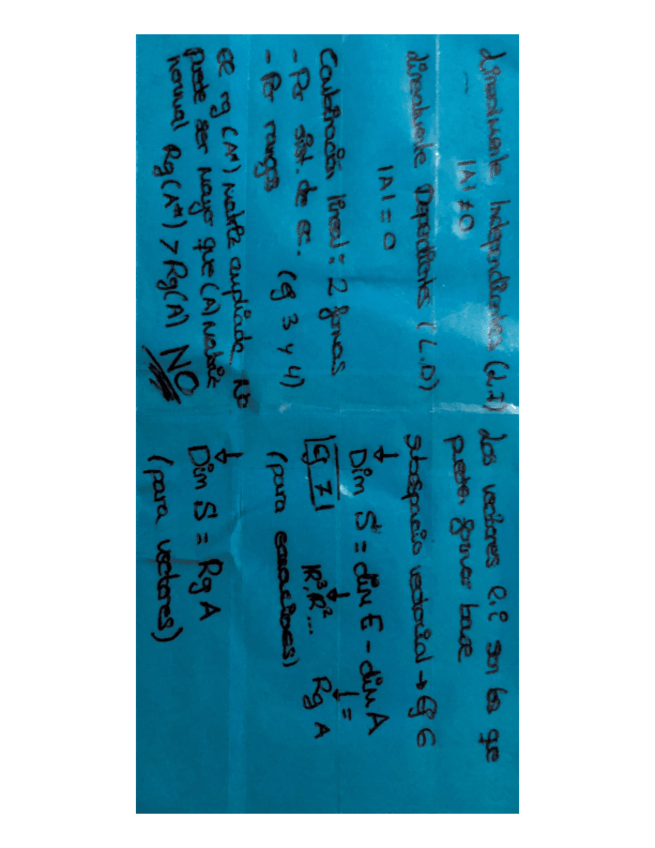 Linealmente Independientes (L.I)
|A| ≠ 0
Linealmente Dependientes (L.D)
|A| = 0
Combinación lineal: 2 formas
- Por sist. de ec.
- Por rangos (Ej 3 y 4)
El rg (A*) matriz ampliada NO
puede ser mayor que (A) matriz
normal Rg(A*) > Rg(A) NO
Los vectores l.i son los que
pueden formar base
Subespacio vectorial → Ej 6
↓
Dim S = dim E - dim A
Ej 7 ↓ ↓ =
R³, R²... Rg A
(para ecuaciones)
↓
Dim S = Rg A
(para vectores)